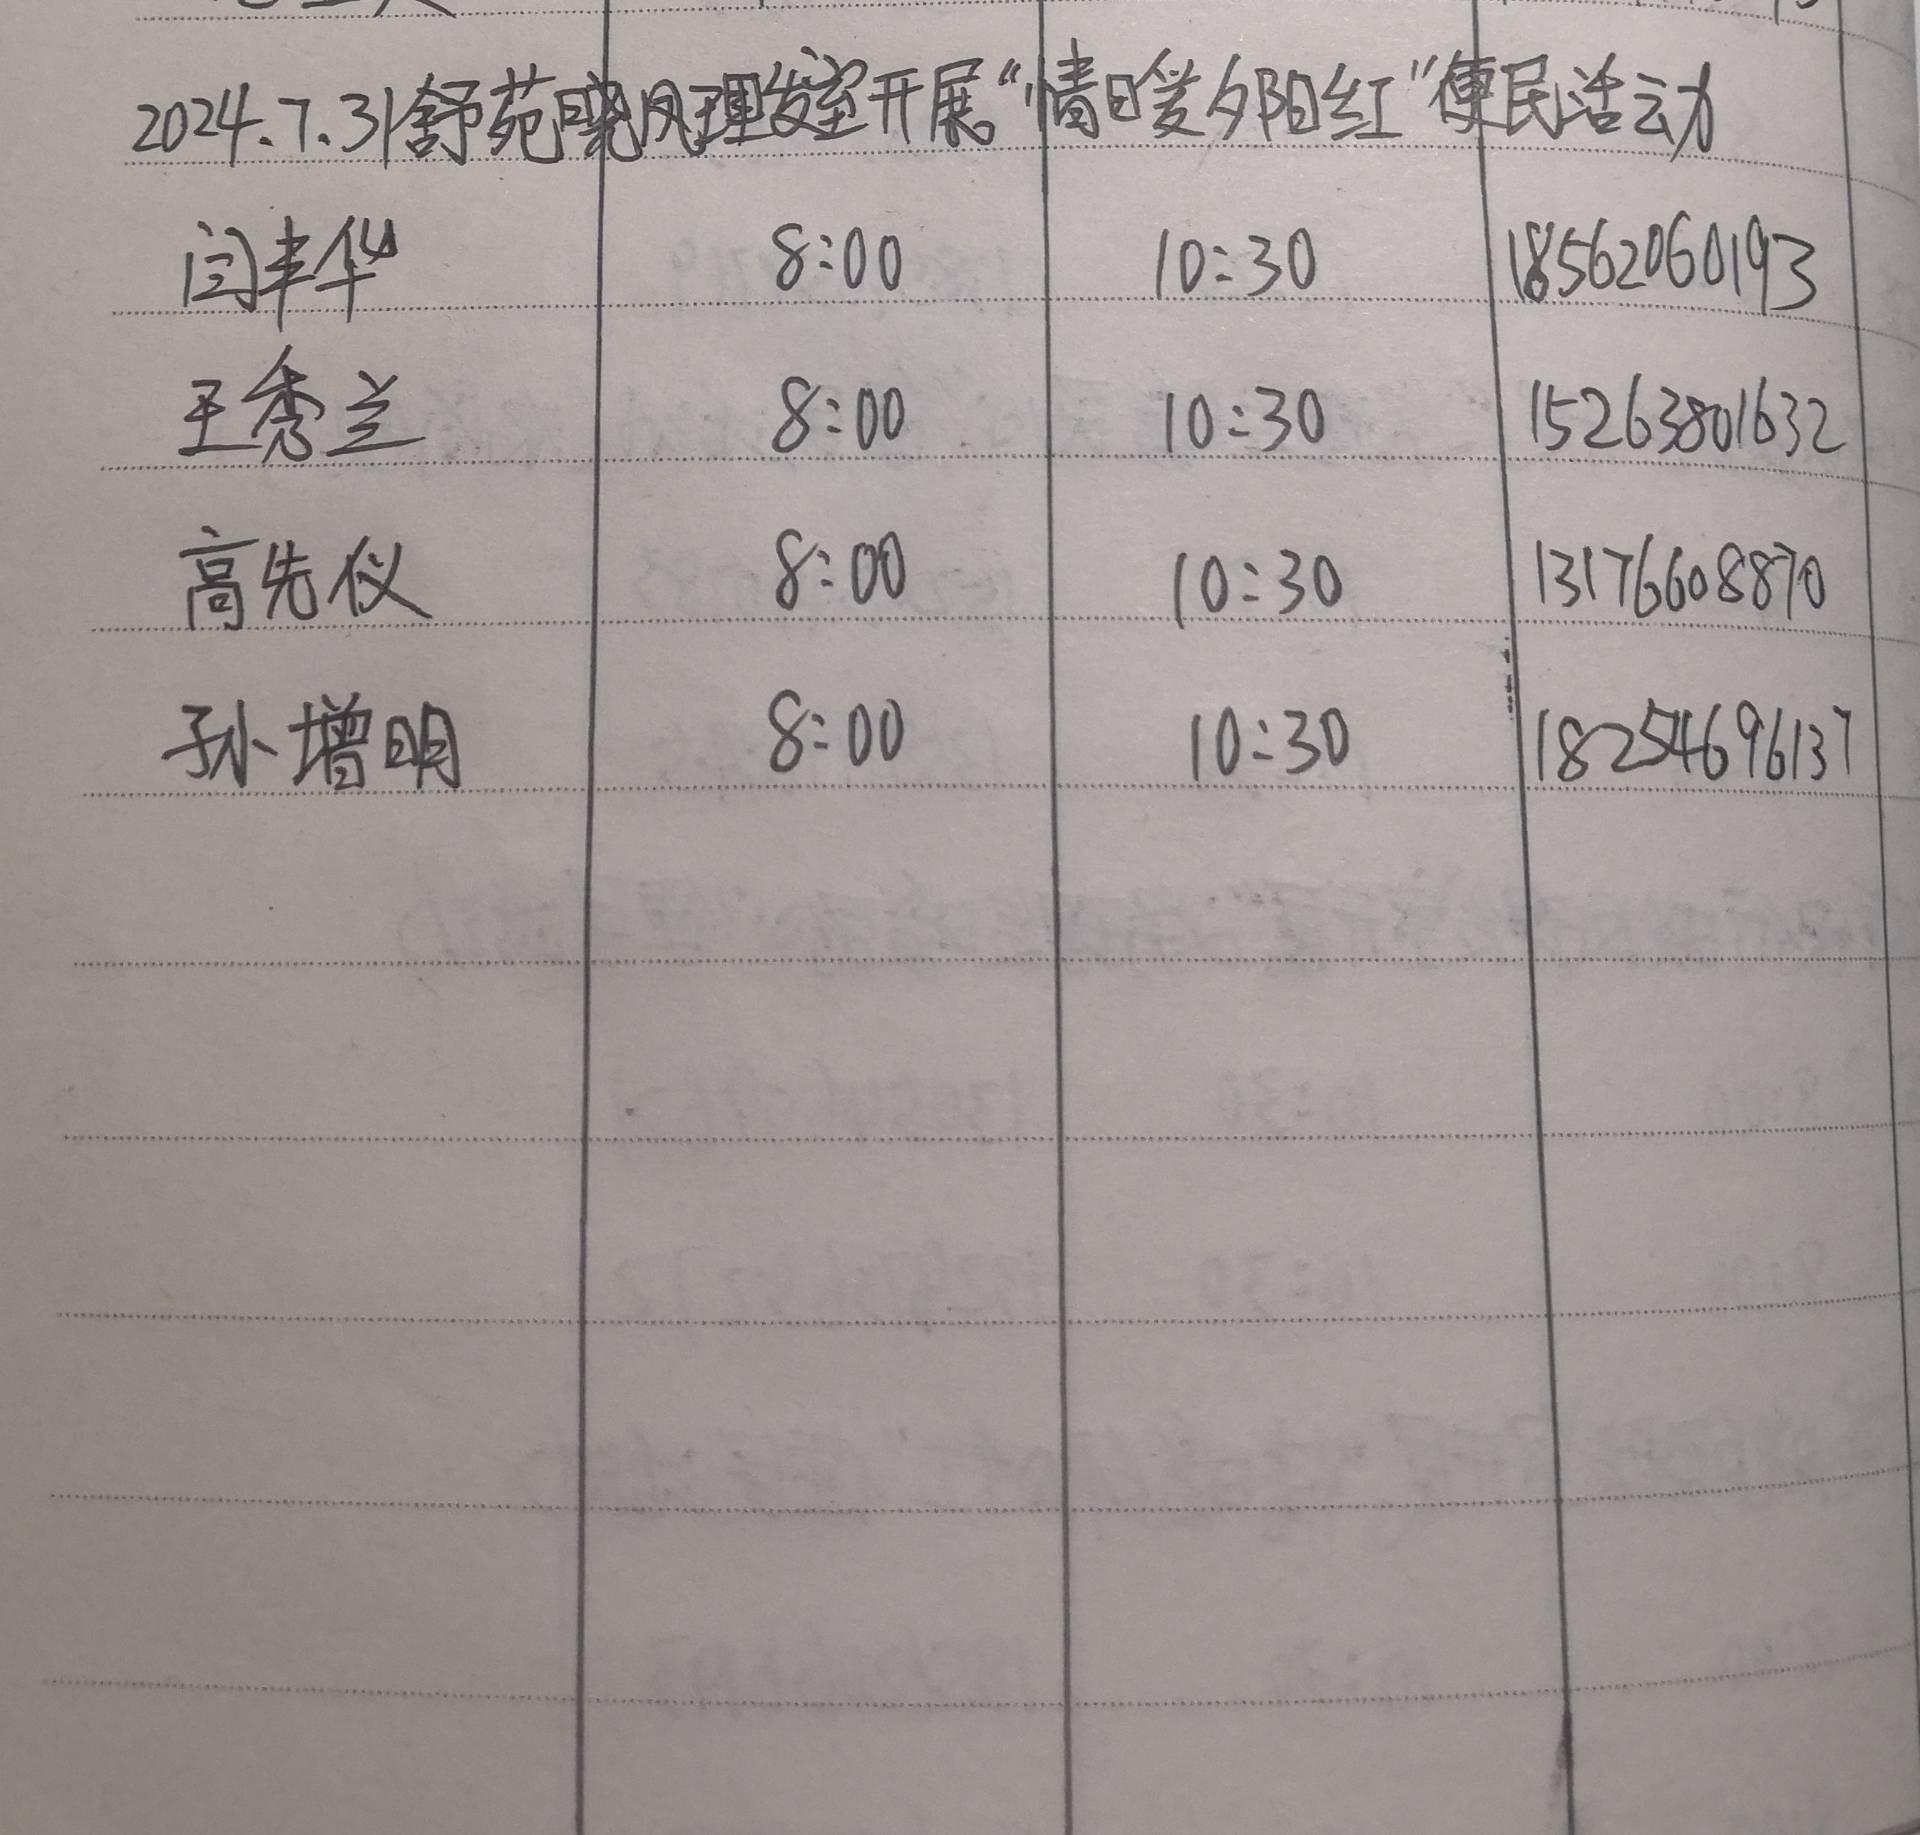 2024.7.31舒苑晓风理发室开展“情暖夕阳红”便民活动
闫丰华 8:00 10:30 18562060193
王秀兰 8:00 10:30 15263801632
高先仪 8:00 10:30 13176608870
孙增明 8:00 10:30 18254696137